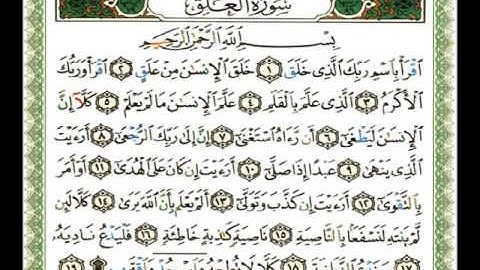 سورة العلق
بسم الله الرحمن الرحيم
اقرأ باسم ربك الذي خلق ١ خلق الإنسٰن من علق ٢ اقرأ وربك
الأكرم ٣ الذي علم بالقلم ٤ علم الإنسٰن ما لم يعلم ٥ كلا إن
الإنسٰن ليطغىٰ ٦ أن رءاه استغنىٰ ٧ إن إلىٰ ربك الرجعىٰ ٨ أرءيت
الذي ينهىٰ ٩ عبدا إذا صلىٰ ١٠ أرءيت إن كان على الهدىٰ ١١ أو أمر
بالتقوىٰ ١٢ أرءيت إن كذب وتولىٰ ١٣ ألم يعلم بأن الله يرىٰ ١٤ كلا لئن
لم ينته لنسفعا بالناصية ١٥ ناصية كٰذبة خاطئة ١٦ فليدع ناديه
١٧ سندع الزبانية ١٨ كلا لا تطعه واسجد واقترب ١٩